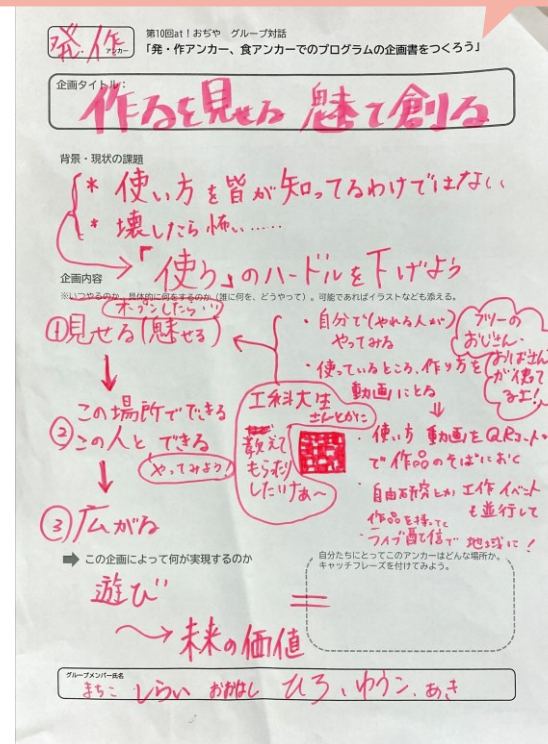 発・作
アンカー
第10回at！おぢや　グループ対話
「発・作アンカー、食アンカーでのプログラムの企画書をつくろう」
企画タイトル：
作るを見せる 魅て創る
背景・現状の課題
* 使い方を皆が知ってるわけではない
* 壊したら怖い……
→「使う」のハードルを下げよう
企画内容
※いつやるのか、具体的に何をするのか（誰に何を、どうやって）。可能であればイラストなども添える。
オープンしたら
①見せる(魅せる)
↓
この場所でできる
②この人と できる
やってみよう!
↓
③広がる
・自分で(やれる人が)
やってみる
・使っているところ、作り方を
動画にとる
⇓
・使い方 動画をQRコード
で作品のそばにおく
・自由研究とか工作イベント
も並行して
作品を持って
・ライブ配信で 地域に！
フツーの
おじさん・
おばさん
が使って
るよ!
工科大生
さんとかに
教えて
もらったり
したいなぁ〜
➡ この企画によって何が実現するのか
遊び
〜→ 未来の価値
＝
自分たちにとってこのアンカーはどんな場所か。
キャッチフレーズを付けてみよう。
グループメンバー氏名
まちこ しらい おおはし ひろ、ゆうこ、あき